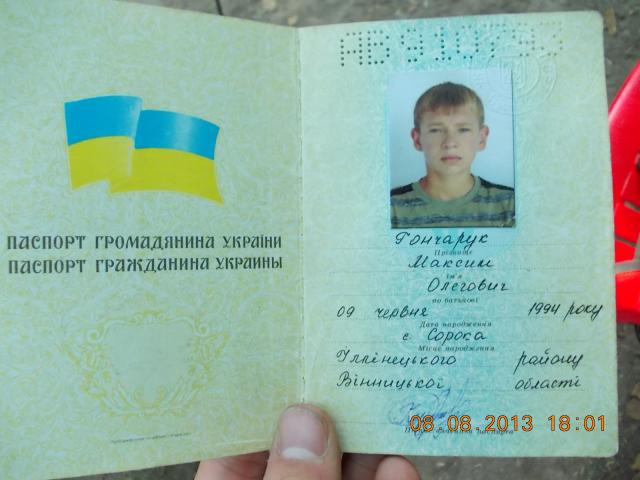 ПАСПОРТ ГРОМАДЯНИНА УКРАЇНИ
ПАСПОРТ ГРАЖДАНИНА УКРАИНЫ
Гончарук
Прізвище
Максим
ім'я
Олегович
по батькові
09 червня 1994 року
Дата народження
с. Сорока
Місце народження
Іллінецького району
Вінницької області
08.08.2013 18:01